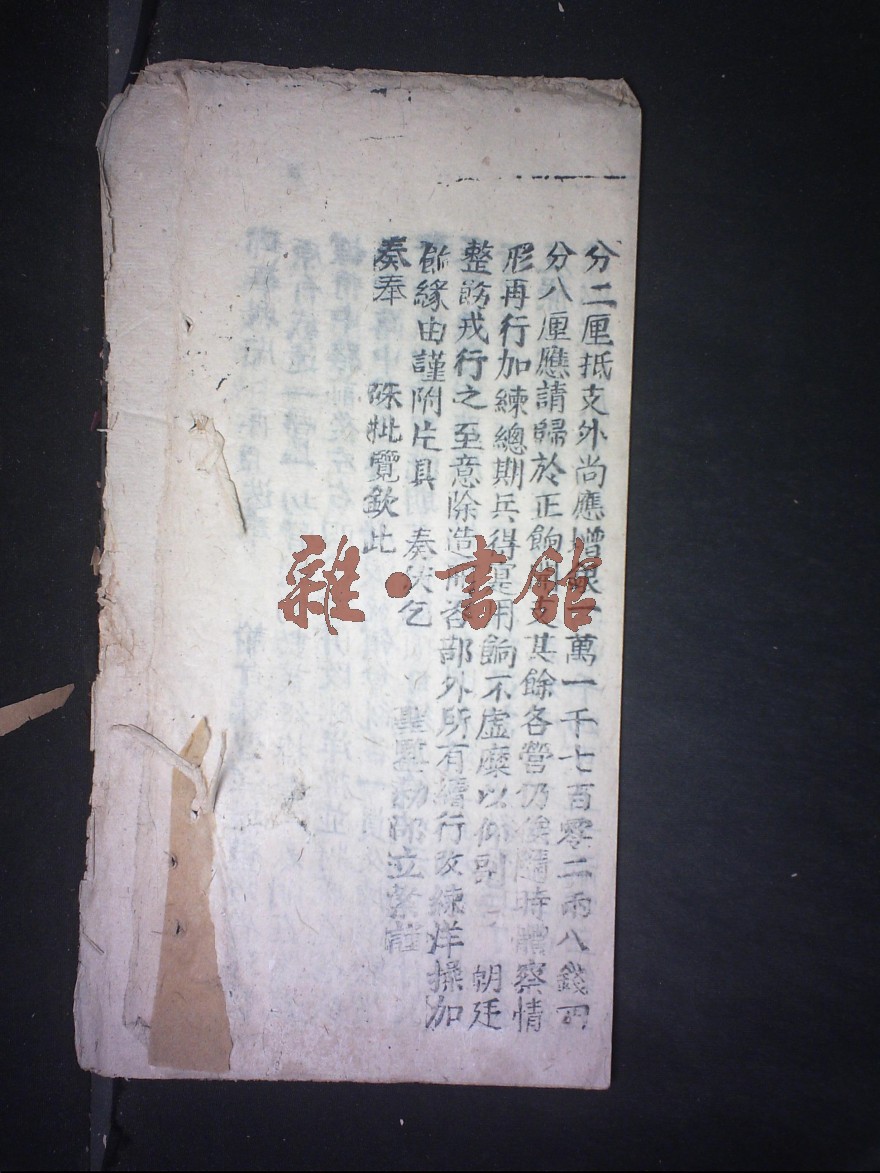 分二厘抵支外尚應增銀一萬一千七百零二兩八錢四
分八厘應請歸於正餉開支其餘各營仍俟隨時體察情
形再行加練總期兵得寔用餉不虛糜以仰副 朝廷
整飭戎行之至意除造冊咨部外所有續行改練洋操加
餉緣由謹附片具 奏伏乞 聖鑒勅部立案謹
奏奉 硃批覽欽此
雜·書館